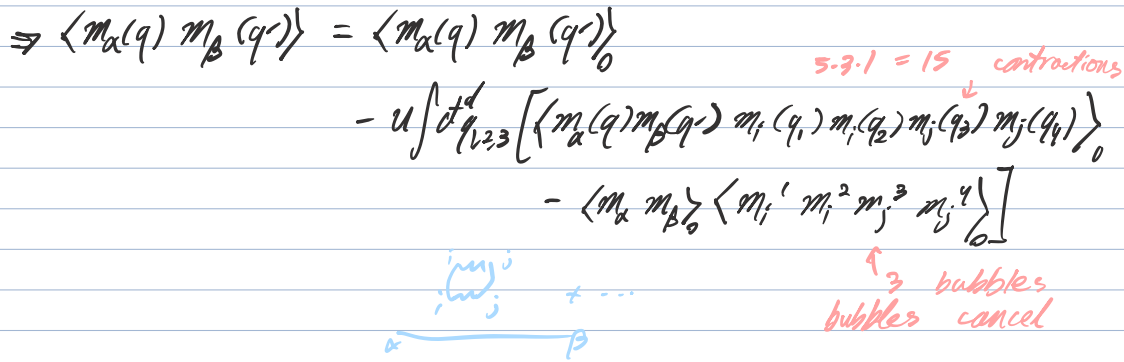 ⇒ ⟨m_α(q) m_β(q')⟩ = ⟨m_α(q) m_β(q')⟩_0
5·3·1 = 15 contractions
↓
- u∫đ^d q_{1,2,3} [⟨m_α(q) m_β(q') m_i(q_1) m_i(q_2) m_j(q_3) m_j(q_4)⟩_0
- ⟨m_α m_β⟩_0 ⟨m_i^1 m_i^2 m_j^3 m_j^4⟩_0]
↑
i j 3 bubbles
i j + ... bubbles cancel
α β